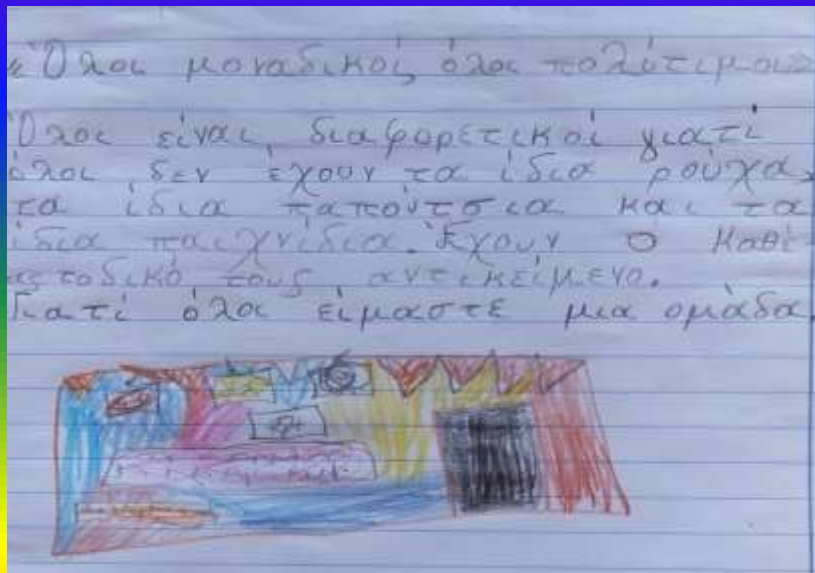 «Όλοι μοναδικοί, όλοι πολύτιμοι»
Όλοι είναι, διαφορετικοί γιατί
όλοι δεν έχουν τα ίδια ρούχα,
τα ίδια παπούτσια και τα
ίδια παιχνίδια. Έχουν ο καθέ-
ας το δικό τους αντικείμενο.
Γιατί όλοι είμαστε μια ομάδα.